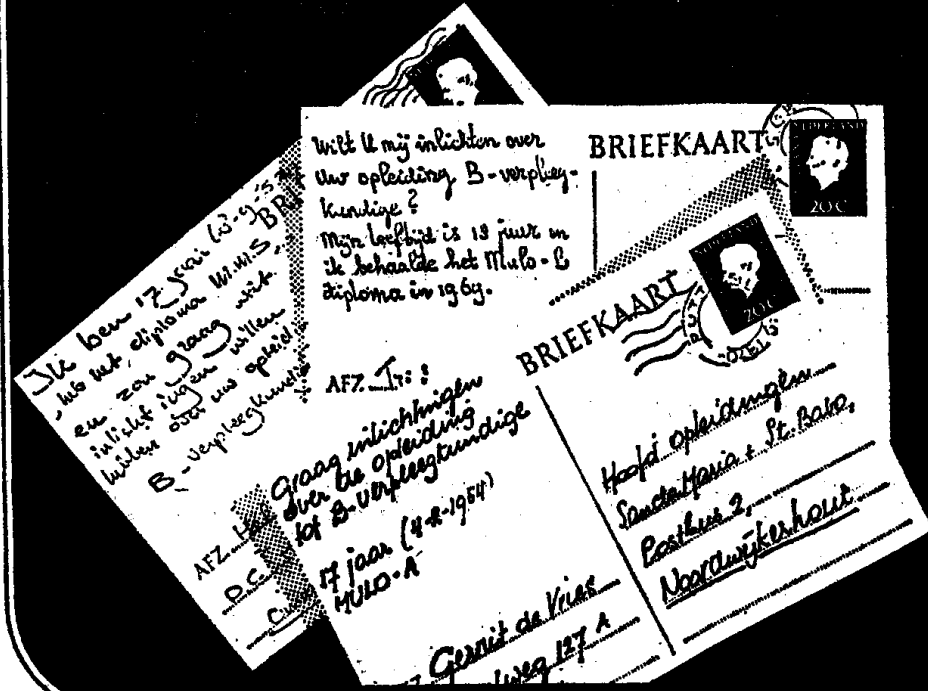 Ik ben 17 jaar
heb het diploma M.M.S.
en zou graag wat
inlichtingen willen
hebben over uw opleid
B-verpleegkundi
AFZ.
Wilt U mij inlichten over
Uw opleiding B-verpleeg-
kundige?
Mijn leeftijd is 19 jaar en
ik behaalde het Mulo-B
diploma in 1969.
AFZ.
BRIEFKAART
NEDERLAND
20 C
Graag inlichtingen
over de opleiding
tot B-verpleegkundige
17 jaar (4-2-1954)
MULO-A
Gerrit de Vries
weg 127 A
BRIEFKAART
NEDERLAND
20 C
Hoofd opleidingen
Sancta Maria + St. Bavo,
Postbus 2,
Noordwijkerhout